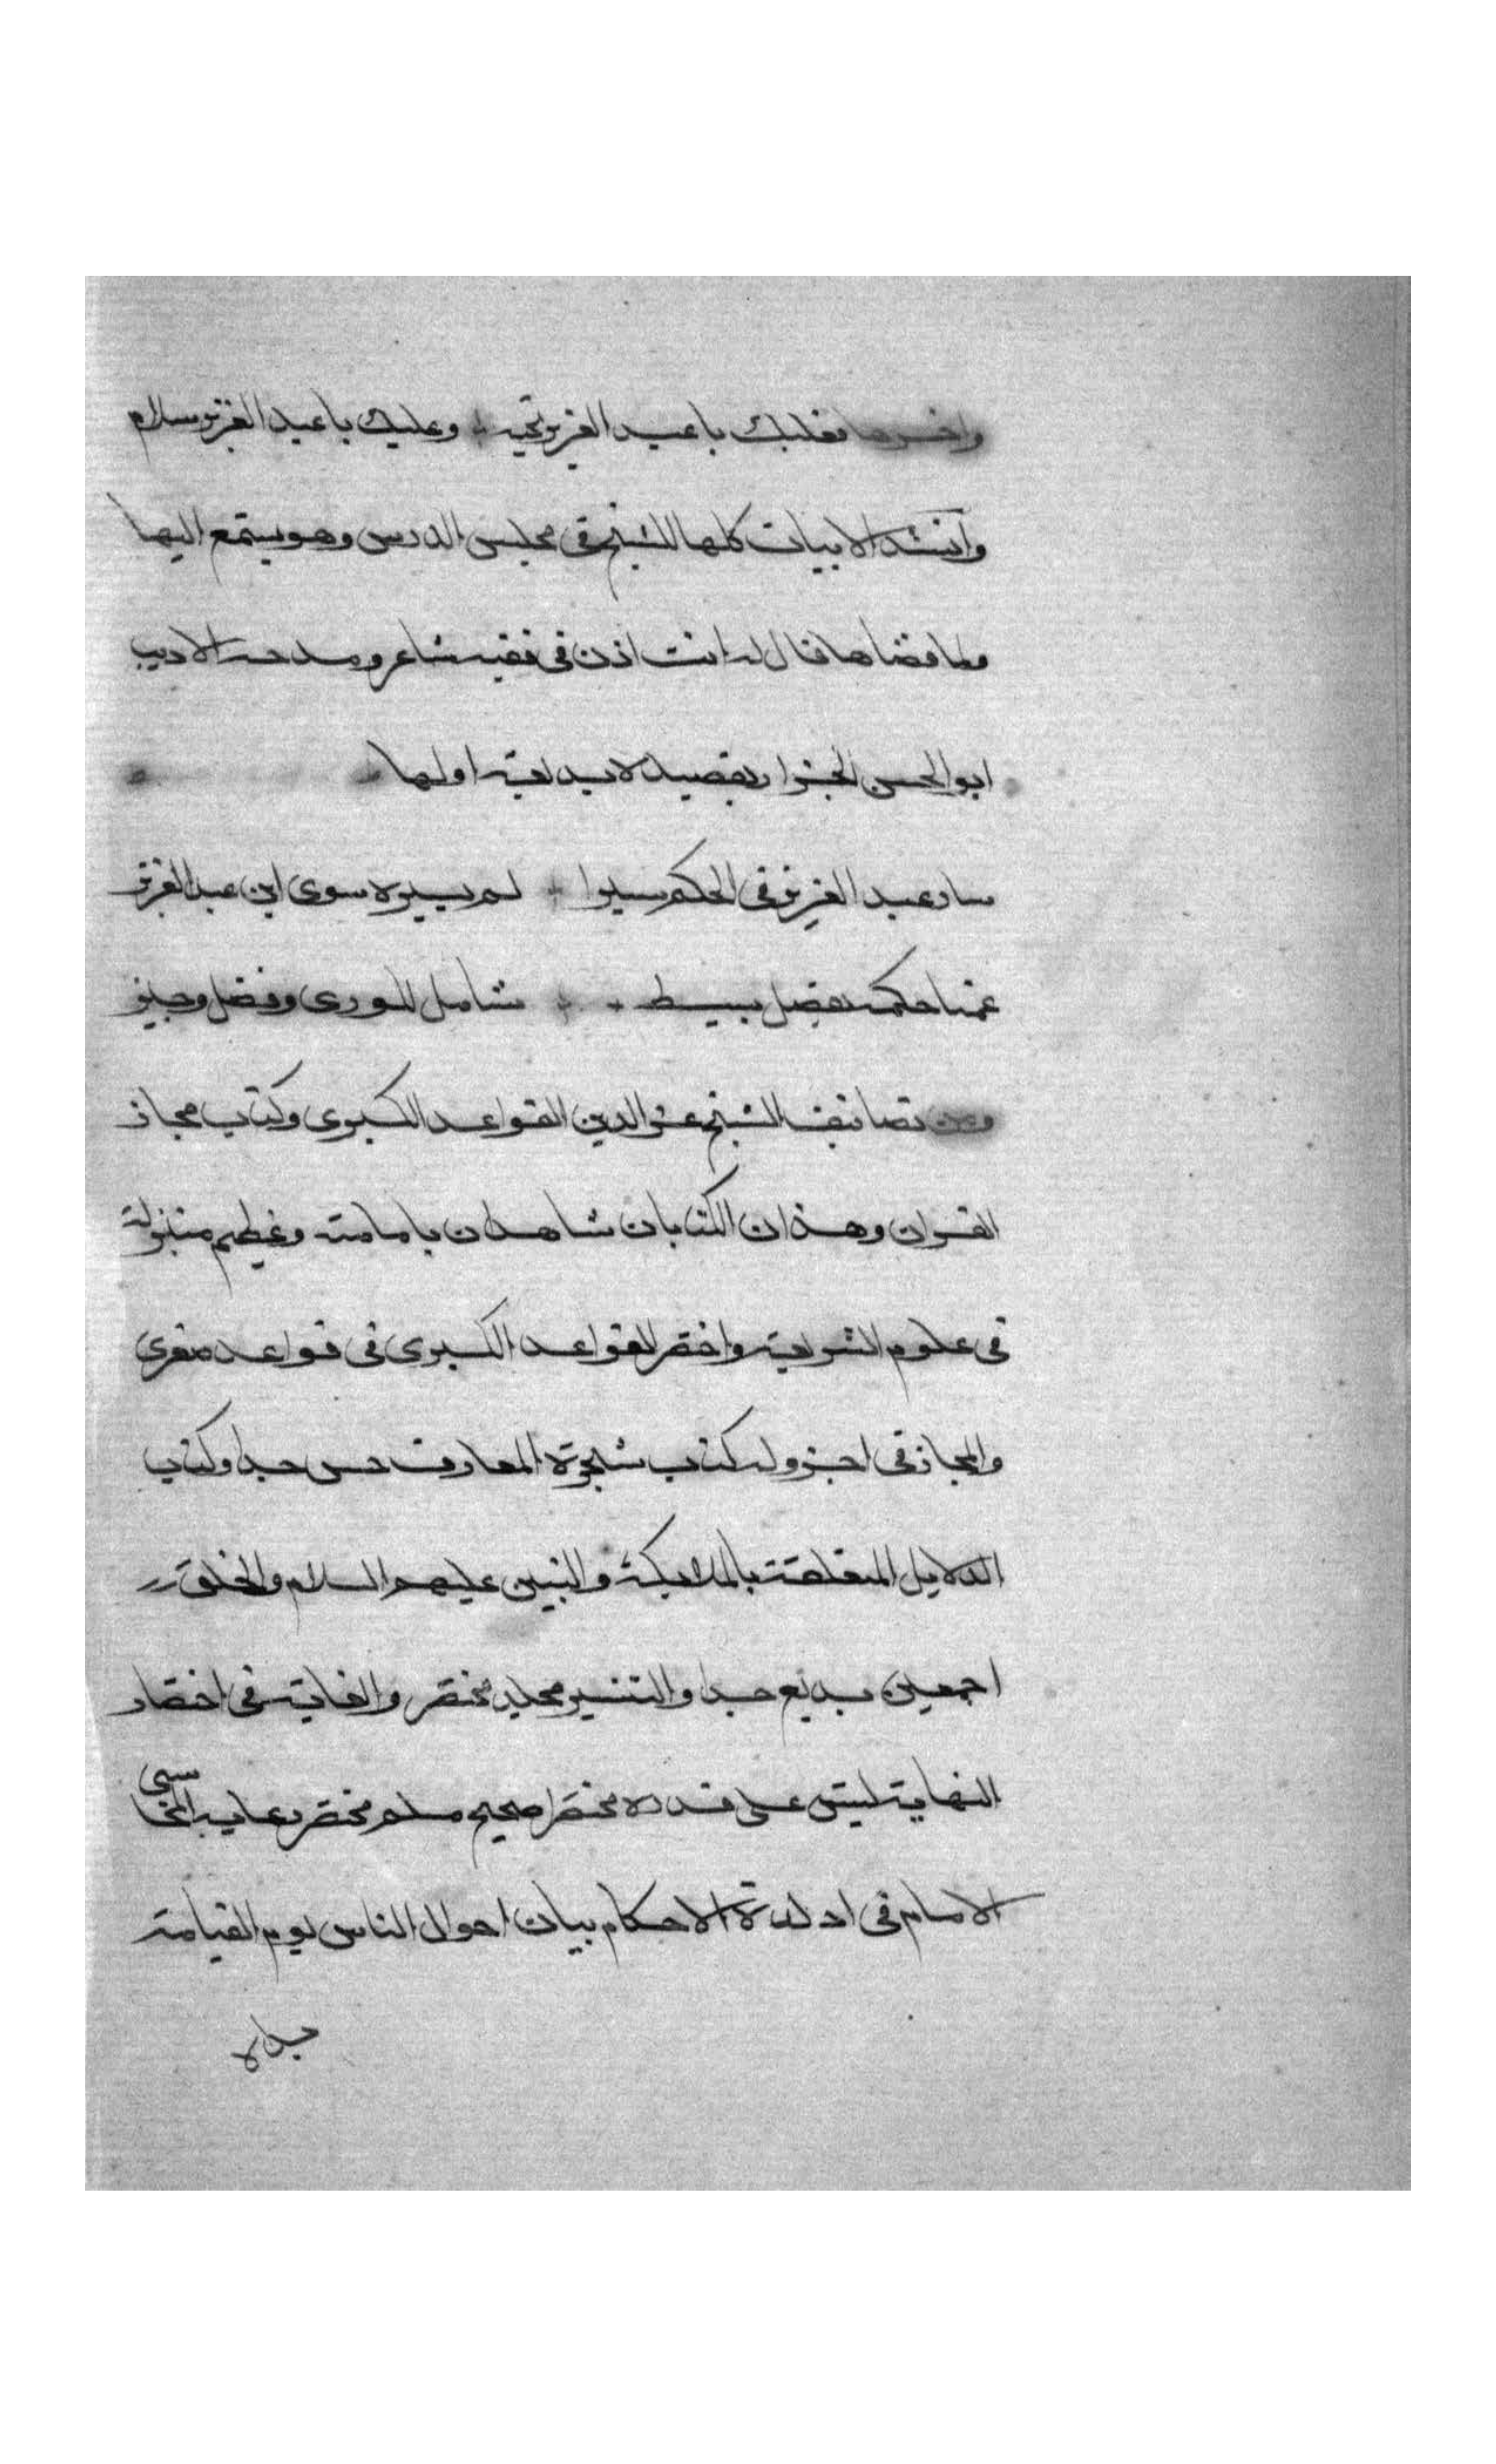 واخرها فعليك يا عبد العزيز تحية وعليك يا عبد العزيز سلام
وانشد الابيات كلها للشيخ في مجلس الدرس وهو يستمع اليها
ولما قضاها قال له انت اذن في فقيه شاعر ومدحه الاديب
ابو الحسن الجزار بقصيدة بديعة اولها
سار عبد العزيز في الحكم سيرا لم يسيره سوى ابن عبد العزيز
عمنا حكمه بفضل بسيط شامل للورى وفضل وجيز
ومن تصانيف الشيخ عز الدين القواعد الكبرى وكتاب مجاز
القران وهذان الكتابان شاهدان بامامته وعظيم منزلته
في علوم الشريعة واختصر القواعد الكبرى في قواعد صغرى
والمجاز في اخر وله كتاب شجرة المعارف حسن جدا وكتاب
الدلايل المتعلقة بالملايكة والنبيين عليهم السلام والخلق
اجمعين بديع جدا والتفسير مجلد مختصر والغاية في اختصار
النهاية ليس على قدره مختصر صحيح مسلم مختصر رعاية المحاسبي
الامام في ادلة الاحكام بيان احوال الناس يوم القيامة